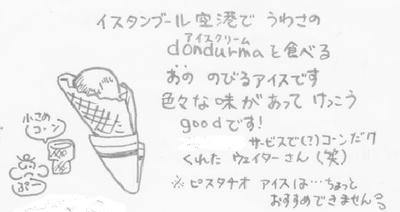 イスタンブール空港で うわさの
アイスクリーム
dondurmaを食べる
あの のびるアイスです
色々な味があって けっこう
goodです!
サービスで(?)コーンだけ
くれた ウェイターさん(笑)
※ピスタチオ アイスは…ちょっと
おすすめできません
小さめ
コーン
ぷー